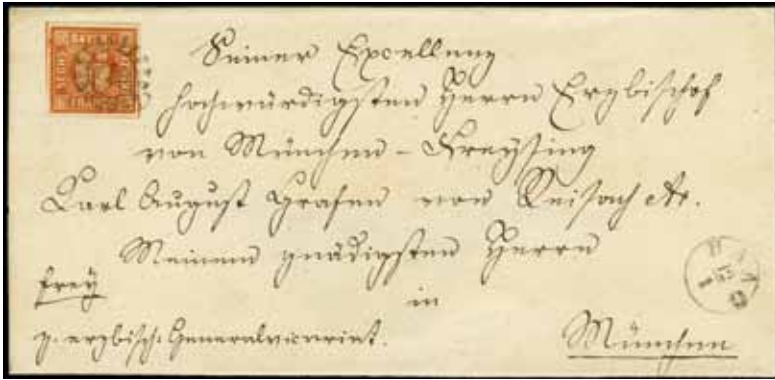 Seiner Excellenz
hochwürdigsten Herrn Erzbischof
von München - Freysing
Karl August Grafen von Reisach etc.
Meinem gnädigsten Herrn
frey
in
z. erzbisch. Generalvicariat.
München